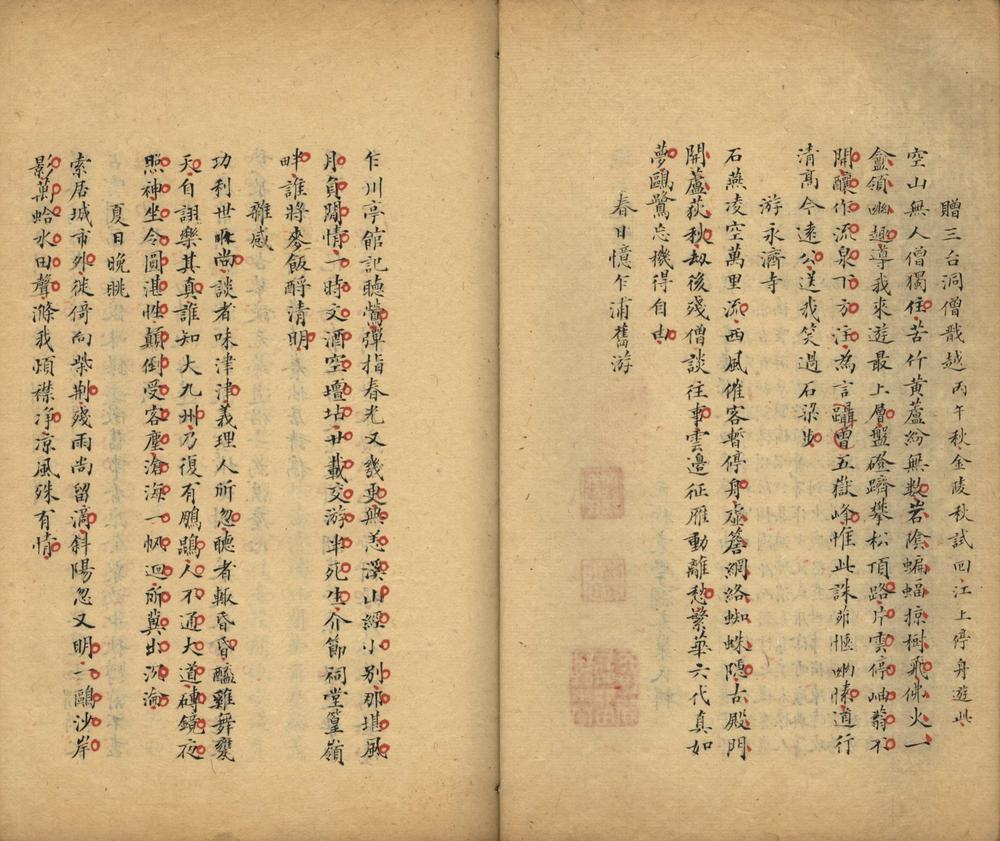 贈三台洞僧戢越丙午秋金陵秋試回江上停舟遊此
空山無人僧獨往苦竹黃蘆紛無數岩陰蝙蝠掠樹飛佛火一
龕領幽趣導我來遊最上層盤磴躋攀松頂路片雲停岫蓊不
開釀作流泉下方注為言躡曾五嶽峰惟此誅茆愜幽愫道行
清高今遠公送我笑過石梁步
游永濟寺
石燕凌空萬里流西風催客暫停舟虛簷網絡蜘蛛隱古殿門
開蘆荻秋劫後殘僧談往事雲邊征雁動離愁繁華六代真如
夢鷗鷺忘機得自由
春日憶乍浦舊游
乍川亭館記聽鶯彈指春光又幾更無恙溪山經小別那堪風
月負閒情一時文酒空壇坫廿載交游半死生介節祠堂篁嶺
畔誰將麥飯酹清明
雜感
功利世所尚談者味津津義理人所忽聽者輒昏昏醯雞舞甕
天自詡樂其真誰知大九州乃復有鵬鵾人不通大道磚鏡夜
照神坐令圓湛性顛倒受客塵滄海一帆迴所冀出沉淪
夏日晚眺
索居城市外徙倚向柴荆殘雨尚留滴斜陽忽又明一鷗沙岸
影萬蛤水田聲滌我煩襟净涼風殊有情